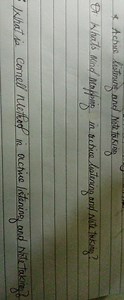 * Active listening and Note taking
Q) Whats Mind Mapping in active listening and Note taking?
What is Cornell Method in active listening and Note taking?